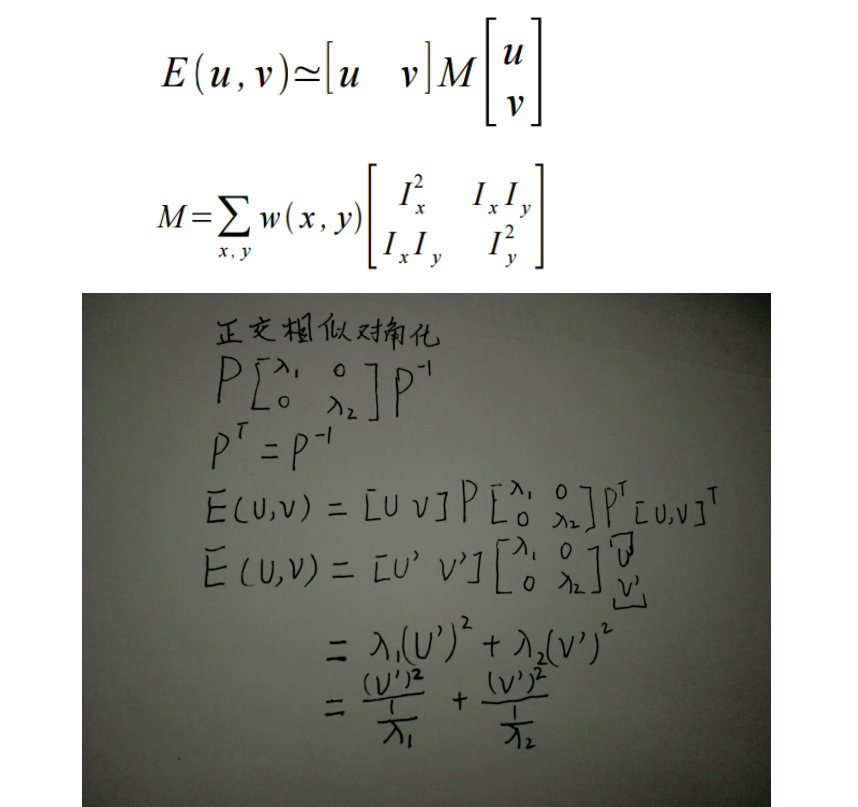 E(u,v)≃[u v]M[u v]
M=∑x,y w(x,y)[I²x IxIy IxIy I²y]
正交相似对角化
P[λ₁ 0 0 λ₂]P⁻¹
Pᵀ=P⁻¹
E(U,V)=[U V]P[λ₁ 0 0 λ₂]Pᵀ[U,V]ᵀ
E(U,V)=[U' V'][λ₁ 0 0 λ₂][U' V']
=λ₁(U')²+λ₂(V')²
=(U')²/(1/λ₁)+(V')²/(1/λ₂)